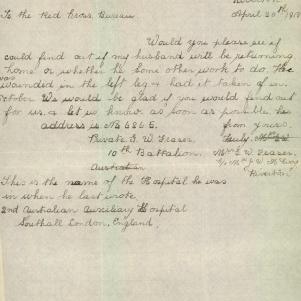 To the Red Cross Bureau
April 30th 1918
Would you please see if
could find out if my husband will be returning
home or whether he some other work to do, He
was
wounded in the left leg & had it taken of in
October We would be glad if you would find out
for us & let us know as soon as possible his
address is No 6865. from yours
Private G. W. Teaser. Truly
10th Battalion. Mrs G W. Teaser.
Australian
Riverton
This is the name of the Hospital he was
in when he last wrote
2nd Australian Auxiliary Hospital
Southall London, England